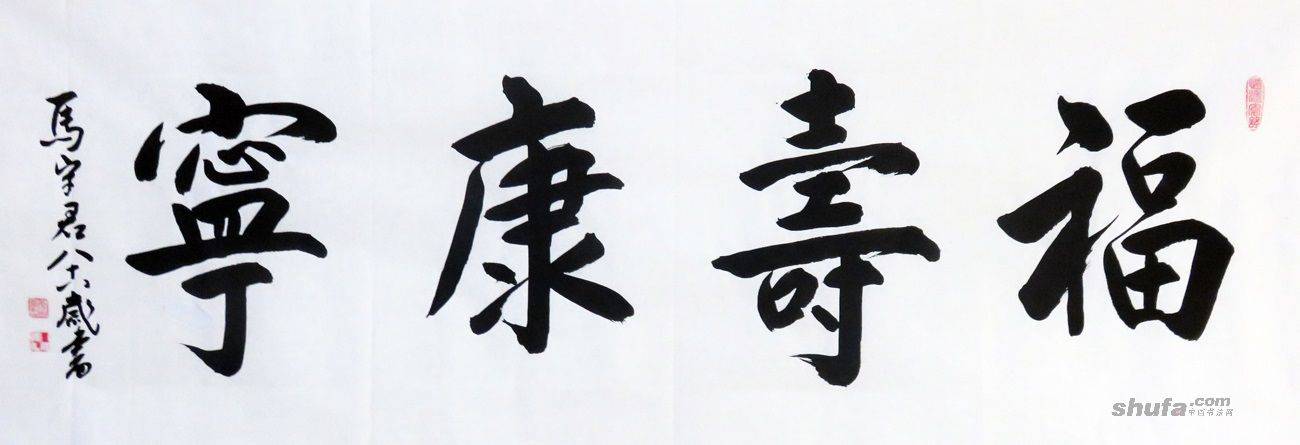 福壽康寧
馬宇君八十六歲書
shufa.com
中国书法网